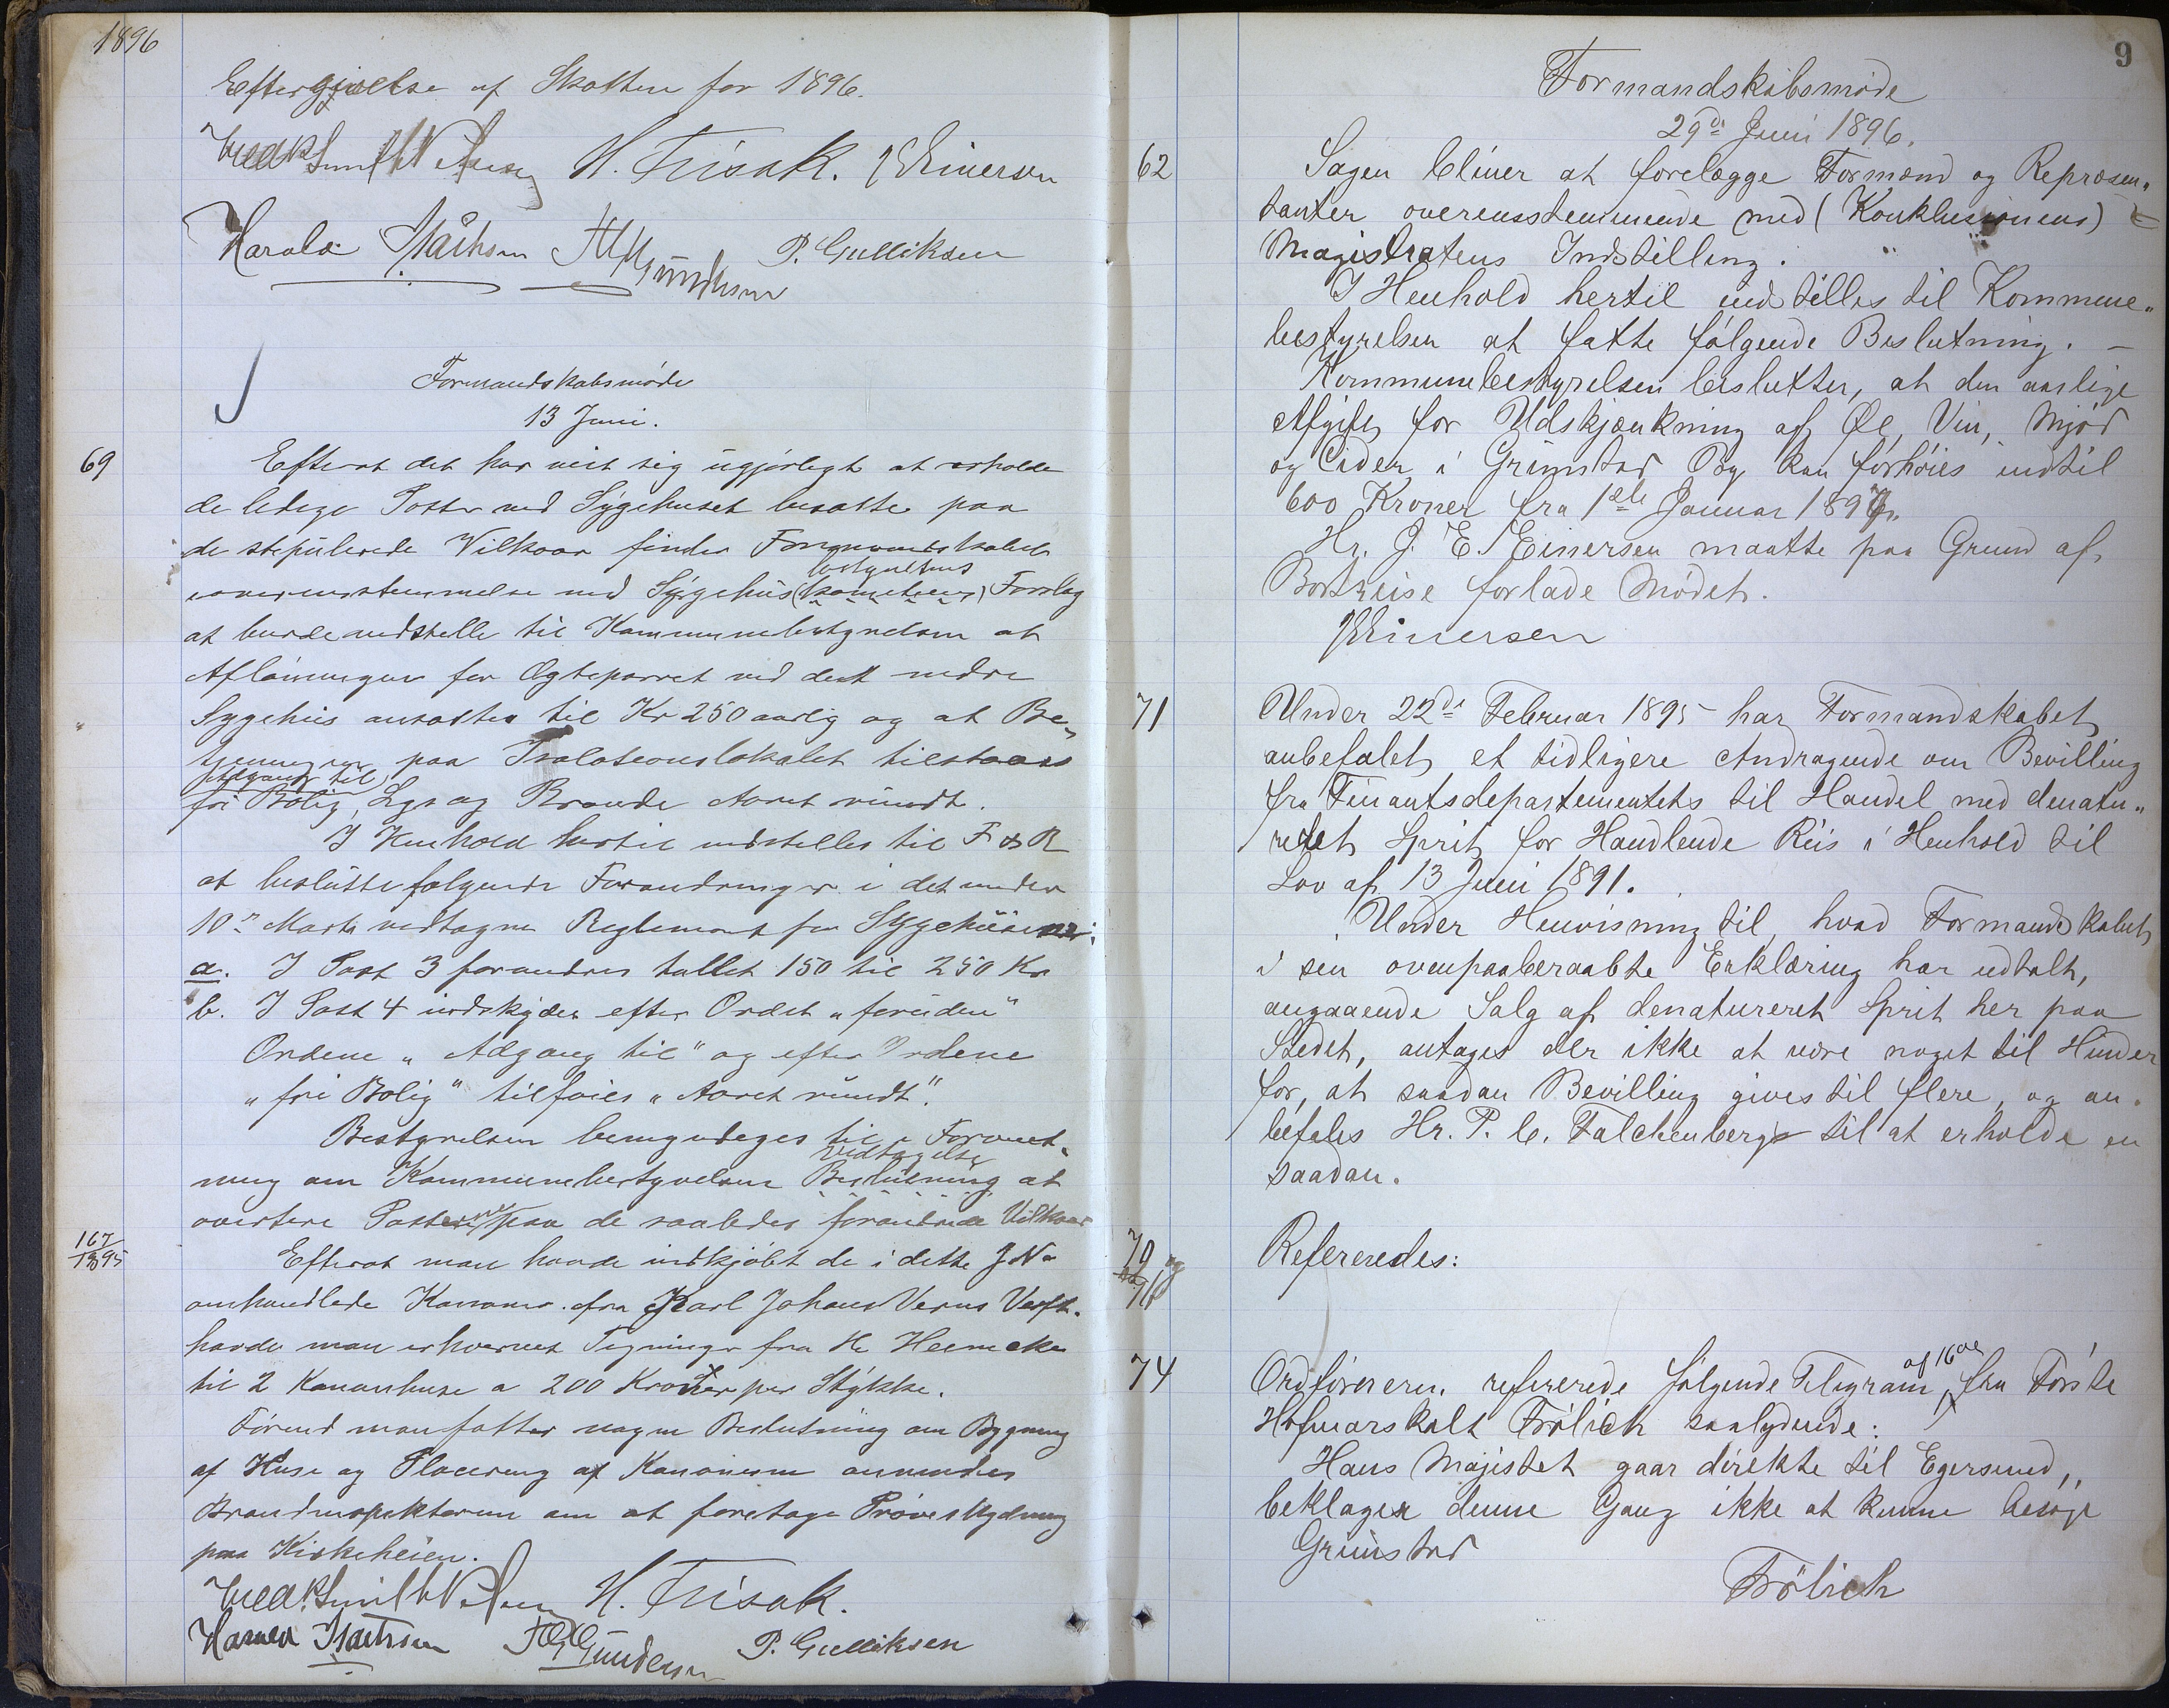 1896
Eftergivelse af Skatten for 1896.
H. Frisak. J E Einersen
Harald P. Gulliksen
Formandskabsmøde
13 Juni.
69
Efterat det har vist sig ugjørligt at erholde
de ledige Poster ved Sygehuset besatte paa
de stipulerede Vilkaar finder Formandskabet
bestyrelsens
i overensstemmelse med Sygehus(komiteens) Forslag
at burde indstille til Kommunebestyrelsen at
Aflønningen for Ægteparret ved det nedre
Sygehus ansættes til Kr 250 aarlig og at Be-
tjeningen paa Isolationslokalet tilstaaes
Adgang til
fri Bolig, Lys og Brænde Aaret rundt.
I Henhold hertil indstilles til F & R
at beslutte følgende Forandringer i det under
10de Marts vedtagne Reglement for Sygehusene:
a. I Post 3 forandres tallet 150 til 250 Kr
b. I Post 4 indskydes efter Ordet "foruden"
Ordene "Adgang til" og efter Ordene
"fri Bolig" tilføies "Aaret rundt".
Bestyrelsen bemyndiges til i Forvent-
Vedtagelse
ning om Kommunebestyrelsens Beslutning at
avertere Posterne paa de saaledes forandrede Vilkaar
167/1895
Efterat man havde indkjøbt de i dette J.No
omhandlede Kanoner fra Karl Johans Værns Verft.
havde man erhvervet Tegninger fra Hr
til 2 Kanonhuse a 200 Kroner per Stykke.
Førend man fatter nogen Beslutning om Bygning
af Huse og Placering af Kanonerne anmodes
Brandinspektøren om at foretage Prøveskydning
paa Kirkeheien.
H. Frisak.
Harald P. Gulliksen
9
Formandskabsmøde
29de Juni 1896.
62
Sagen bliver at forelægge Formænd og Repræsen-
tanter overensstemmende med (Konklusionens)
Magistratens Indstilling.
I Henhold hertil indstilles til Kommune-
bestyrelsen at fatte følgende Beslutning. –
Kommunebestyrelsen beslutter, at den aarlige
Afgift for Udskjænkning af Øl, Vin, Mjød
og Cider i Grimstad By kan forhøies indtil
600 Kroner fra 1ste Januar 1897.
Hr. J. E. Einersen maatte paa Grund af
Bortreise forlade Mødet.
J E Einersen
71
Under 22de Februar 1895 har Formandskabet
anbefalet et tidligere Andragende om Bevilling
fra Finantsdepartementets til Handel med denatu-
reret Sprit for Handlende Riis i Henhold til
Lov af 13 Juni 1891.
Under Henvisning til, hvad Formandskabet
i sin ovenpaaberaabte Erklæring har udtalt,
angaaende Salg af denatureret Sprit her paa
Stedet, antages der ikke at være noget til Hinder
for, at saadan Bevilling gives til flere, og an-
befales Hr. P. C. Falchenberg til at erholde en
saadan.
70 og
Refereredes:
74
af 16de
Ordføreren refererede følgende Telegram fra Første
Hofmarskalt Frølich saalydende:
Hans Majistet gaar direkte til Egersund,
beklager denne Gang ikke at kunne besøge
Grimstad
Frølich